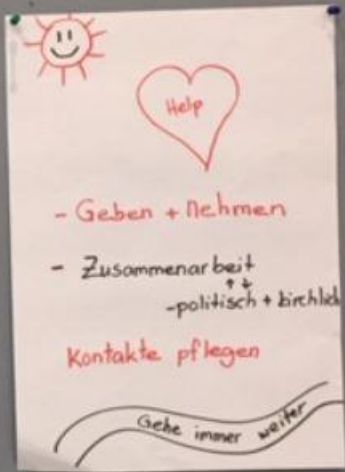 Help
- Geben + nehmen
- Zusammenarbeit
- politisch + kirchlich
Kontakte pflegen
Gehe immer weiter